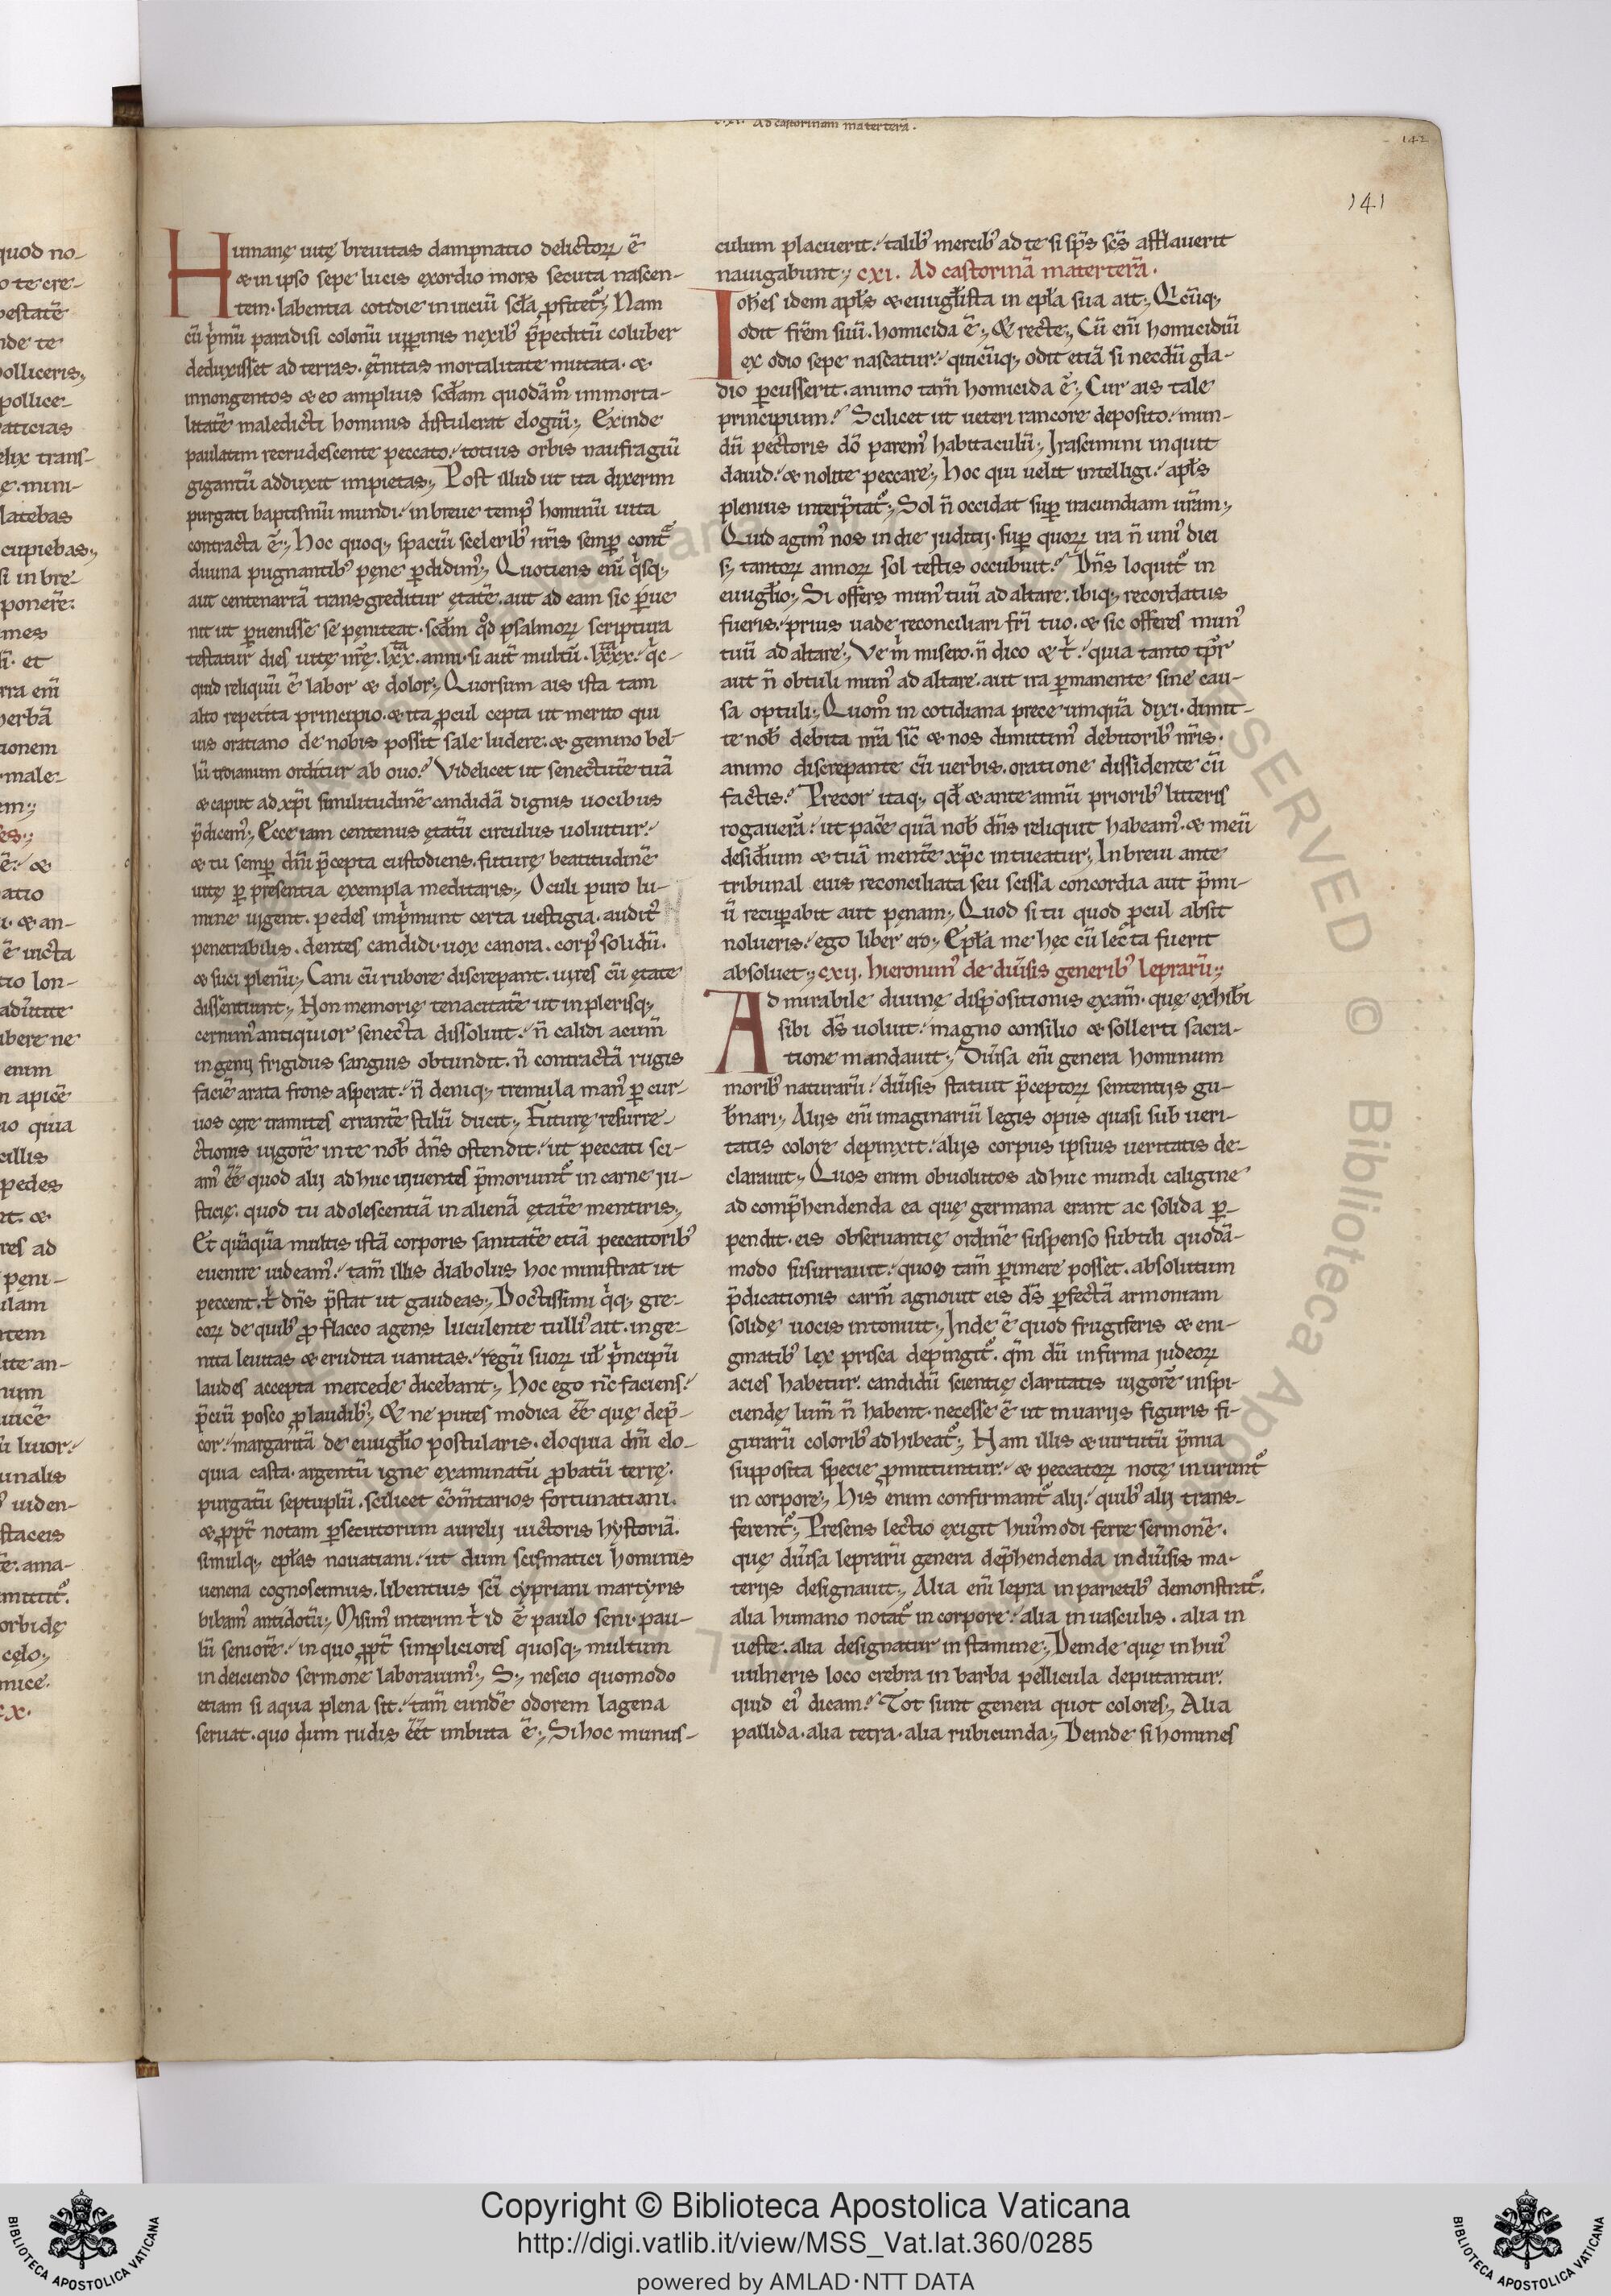 Ad castorinam materterā.
142
141
Humanę uitę breuitas dampnatio delictoꝝ ē
& in ipso sepe lucis exordio mors secuta nascen-
tem. labentia cotidie in uiciū scła ꝓfitet᷑; Nam
cū p̾mū paradisi colonū uiꝑinis nexib᷒ p̄peditū coluber
deduxisset ad terras. ęt̄nitas mortalitate mutata. &
innongentos & eo amplius scđam quodāmͦ immorta-
litatē maledicti hominis distulerat elogiū; Exinde
paulatim recrudescente peccato. totius orbis naufragiū
gigantū adduxit impietas; Post illud ut ita dixerim
purgati baptismū mundi. in breue temp᷒ hominū uita
contracta ē; Hoc quoq; spaciū scelerib᷒ nr̄is semꝑ cont᷑
diuina pugnantib᷒ pęne ꝑdidim᷒; Quotiens eni̅ q̾sq;
aut centenariā transgreditur ętatē. aut ad eam sic ꝑue
nit ut ꝑuenisse se pęniteat. scđm qd̾ psalmoꝝ scriptura
testatur dies uitę nr̄ę. lxx. anni. si aut̄ multū. lxxx. q̾c-
quid reliquū ē labor & dolor; Quorsum ais ista tam
alto repetita principio. & ita ꝓcul cepta ut merito qui
uis oratiano de nobis possit sale ludere. & gemino bel-
lū troianum orditur ab ouo? Videlicet ut senectutē tuā
& caput ad xp̄i similitudinē candidā dignis uocibus
p̄dicem᷒; Ecce iam centenus ętatū circulus uoluitur.
& tu semꝑ dn̄i p̄cepta custodiens. futurę beatitudinē
uitę ꝑ presentia exempla meditaris; Oculi puro lu-
mine uigent. pedes imp̾munt certa uestigia. audit᷒
penetrabilis. dentes candidi. uox canora. corp᷒ solidū.
& suci plenū; Cani cū rubore discrepant. uires cū ętate
dissentiunt; Non memorię tenacitatē ut in plerisq;
cernim᷒ antiquior senecta dissoluit. n̄ calidi acum̄
ingenij frigidus sanguis obtundit. n̄ contractā rugis
faciē arata frons asperat. n̄ deniq; tremula man᷒ ꝑ cur-
uos cęre tramites errantē stilū ducit; Futurę resurre-
ctionis uigorē in te nob̄ dn̄s ostendit. ut peccati sci-
am᷒ ēē quod alij adhuc uiuentes p̄moriunt᷑ in carne iu-
sticię. quod tu adolescentiā in alienā ętatē mentiris;
Et quāquā multis istā corporis sanitatē etiā peccatorib᷒
euenire uideam᷒. tam̄ illis diabolus hoc ministrat ut
peccent. t̾ dn̄s p̄stat ut gaudeas; Doctissimi q̾q; gre-
coꝝ de quib᷒ ꝓ flacco agens luculente tulli᷒ ait. inge-
nita leuitas & erudita uanitas. regū suoꝝ ul̄ p̾ncipū
laudes accepta mercede dicebant; Hoc ego nc̄ faciens.
p̄ciū posco ꝓ laudib᷒; & ne putes modica ēē quę dep̄-
cor. margaritā de euuglīo postularis. eloquia dn̄i elo-
quia casta. argentū igne examinatū ꝓbatū terrę.
purgatū septuplū. scilicet cōm̄tarios fortunatiani.
& ꝓpt̄ notam ꝑsecutorum aurelij uictoris hystoriā.
simulq; epłas nouatiani. ut dum scismatici hominis
uenena cognoscimus. libentius sci̅ cypriani martyris
bibam᷒ antidotū; Misim᷒ interim t̾ id ē paulo seni. pau-
lū seniorē. in quo ꝓpt̄ simpliciores quosq; multum
in deiciendo sermone laborauim᷒; S; nescio quomodo
etiam si aqua plena sit. tam̄ eundē odorem lagena
seruat. quo dum rudis ēēt imbuta ē; Si hoc munus-
culum placuerit. talib᷒ mercib᷒ ad te si sp̄s sc̄s afflauerit
nauigabunt; cxi. Ad castorinā materterā.
Ioh̄es idem apl̄s & euuglīsta in epła sua ait; Qi̾cūq;
odit fr̄em suū. homicida ē; & recte; Cū eni̅ homicidiū
ex odio sepe nascatur. quicūq; odit etiā si necdū gla-
dio ꝑcusserit. animo tam̄ homicida ē; Cur ais tale
principium? Scilicet ut ueteri rancore deposito. mun-
dū pectoris dō parem᷒ habitaculū; Irascimini inquit
dauid. & nolite peccare; Hoc qui uelit intelligi. apl̄s
plenius interp̄tat᷑; Sol n̄ occidat suꝑ iracundiam ur̄am;
Quid agim᷒ nos in die iuditij. suꝑ quoꝝ ira n̄ uni᷒ diei
s; tantoꝝ annoꝝ sol testis occubuit? Dn̄s loquit᷑ in
euuglīo; Si offers mun᷒ tuū ad altare. ibiq; recordatus
fueris. prius uade reconciliari fr̄i tuo. & sic offeres mun᷒
tuū ad altare; Ve m̾ misero. n̄ dico & t̾. quia tanto tp̄r
aut n̄ obtuli mun᷒ ad altare. aut ira ꝑmanente sine cau-
sa optuli; Quomͦ in cotidiana prece umquā dixi. dimit-
te nob̄ debita nr̄a sic̄ & nos dimittim᷒ debitorib᷒ nr̄is.
animo discrepante cū uerbis. oratione dissidente cū
factis? Precor itaq; qđ & ante annū priorib᷒ litteris
rogauerā. ut pacē quā nob̄ dn̄s reliquit habeam᷒. & meū
desid̄ium & tuā mentē xp̄c intueatur; In breui ante
tribunal eius reconciliata seu scissa concordia aut p̄mi-
ū recuꝑabit aut pęnam; Quod si tu quod ꝓcul absit
nolueris. ego liber ero; Epła me hęc cū lecta fuerit
absoluet; cxij. Hieronim᷒ de diūsis generib᷒ leprarū;
Admirabile diuinę dispositionis exam̄. quę exhib̄i
sibi ds̄ uoluit. magno consilio & sollerti sacra-
tione mandauit; Diūsa eni̅ genera hominum
morib᷒ naturarū. diūsis statuit p̄ceptoꝝ sententijs gu-
b̄nari; Alijs eni̅ imaginariū legis opus quasi sub ueri-
tatis colore depinxit. alijs corpus ipsius ueritatis de-
clarauit; Quos enim obuolutos adhuc mundi caligine
ad comp̄hendenda ea quę germana erant ac solida ꝑ-
pendit. eis obseruantię ordinē suspenso subtili quodā-
modo susurrauit. quos tam̄ ꝑimere posset. absolutum
p̄dicationis carm̄ agnouit eis ds̄ ꝑfectā armoniam
solidę uocis intonuit; Inde ē quod frugiferis & eni-
gmatib᷒ lex prisca depingit᷑. qm̄ dū infirma iudeoꝝ
acies habetur. candidū scientię claritatis uigorē inspi-
ciendę lum̄ n̄ habent. necesse ē ut in uarijs figuris fi-
gurarū colorib᷒ adhibeat᷑; Nam illis & uirtutū p̄mia
supposita specie ꝓmittuntur. & peccatoꝝ notę inurunt᷑
in corpore; His enim confirmant᷑ alij. quib᷒ alij trans-
ferent᷑; Presens lectio exigit hui᷒modi ferre sermonē.
quę diūsa leprarū genera dep̄hendenda in diūsis ma-
terijs designauit; Alia eni̅ lepra in parietib᷒ demonstrat᷑.
alia humano notat᷑ in corpore. alia in uasculis. alia in
ueste. alia designatur in stamine; Deinde quę in hui᷒
uulneris loco crebra in barba pellicula deputantur.
quid ei᷒ dicam? Tot sunt genera quot colores; Alia
pallida. alia tetra. alia rubicunda; Deinde si homines
Copyright © Biblioteca Apostolica Vaticana
http://digi.vatlib.it/view/MSS_Vat.lat.360/0285
powered by AMLAD·NTT DATA
BIBLIOTECA APOSTOLICA VATICANA
BIBLIOTECA APOSTOLICA VATICANA